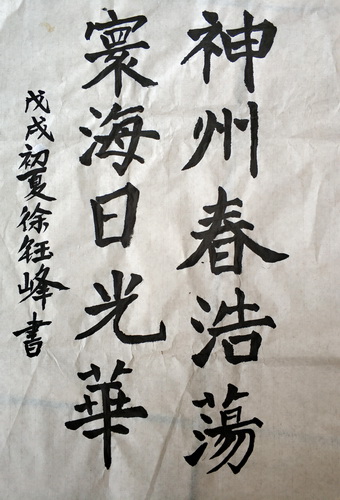 神州春浩蕩
寰海日光華
戊戌初夏徐鈺峰書